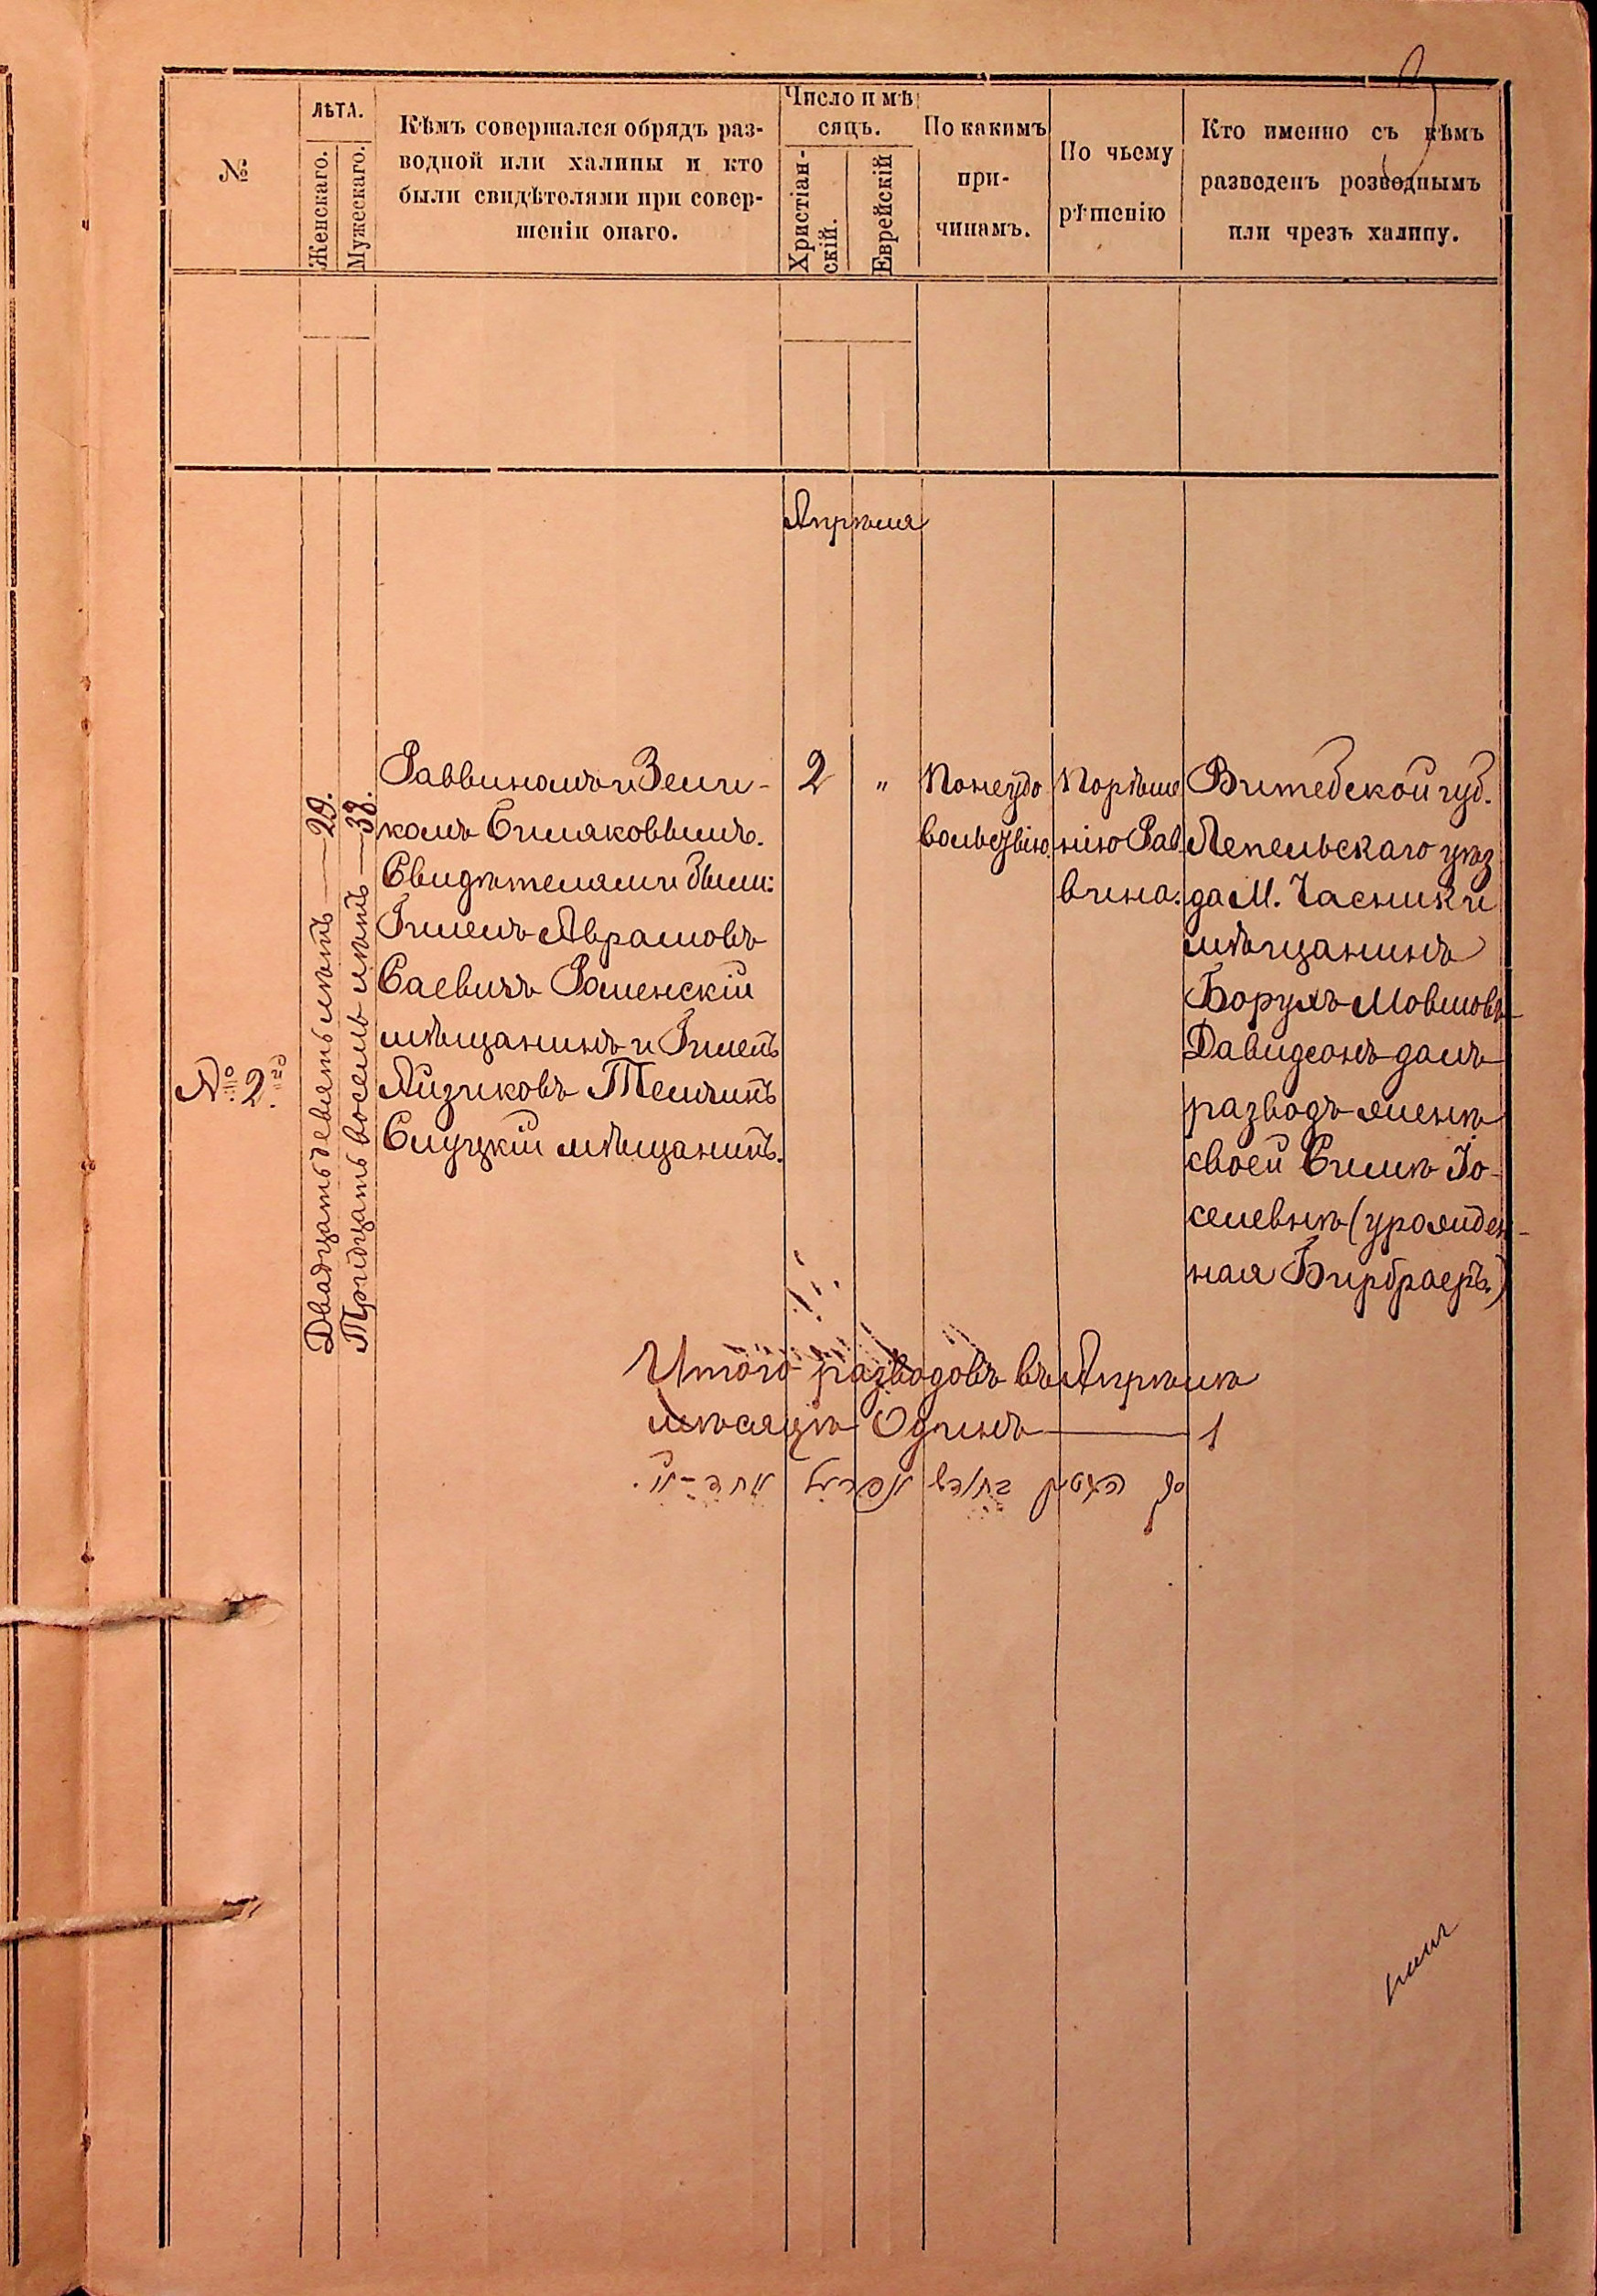 №
ЛѢТА.
Женскаго.
Мужескаго.
Кѣмъ совершался обрядъ раз-
водной или халицы и кто
были свидѣтелями при совер-
шеніи онаго.
Число и мѣ
сяцъ.
Христіан-
скій.
Еврейскій
По какимъ
при-
чинамъ.
По чьему
рѣшенію
Кто именно съ кѣмъ
разведенъ розводнымъ
или чрезъ халицу.
Апрѣля
№ 2
Двадцать девять лѣтъ — 29.
Тридцать восемь лѣтъ — 38.
Раввиномъ Зели-
комъ Симяковымъ.
Свидѣтелями были:
Гилель Аврамовъ
Саевичъ Роменскій
мѣщанинъ и Гилель
Айзиковъ Темчинъ
Слуцкій мѣщанинъ.
2
"
По неудо
вольствію.
По рѣше
нію Рав
вина.
Витебской губ.
Лепельскаго уѣз
да М. Часники
мѣщанинъ
Борухъ Мовшовъ
Давидсонъ далъ
разводъ женѣ
своей Симѣ Іо-
селевнѣ (урожден-
ная Бирбраеръ)
Итого разводовъ въ Апрѣлѣ
мѣсяцѣ Одинъ — 1